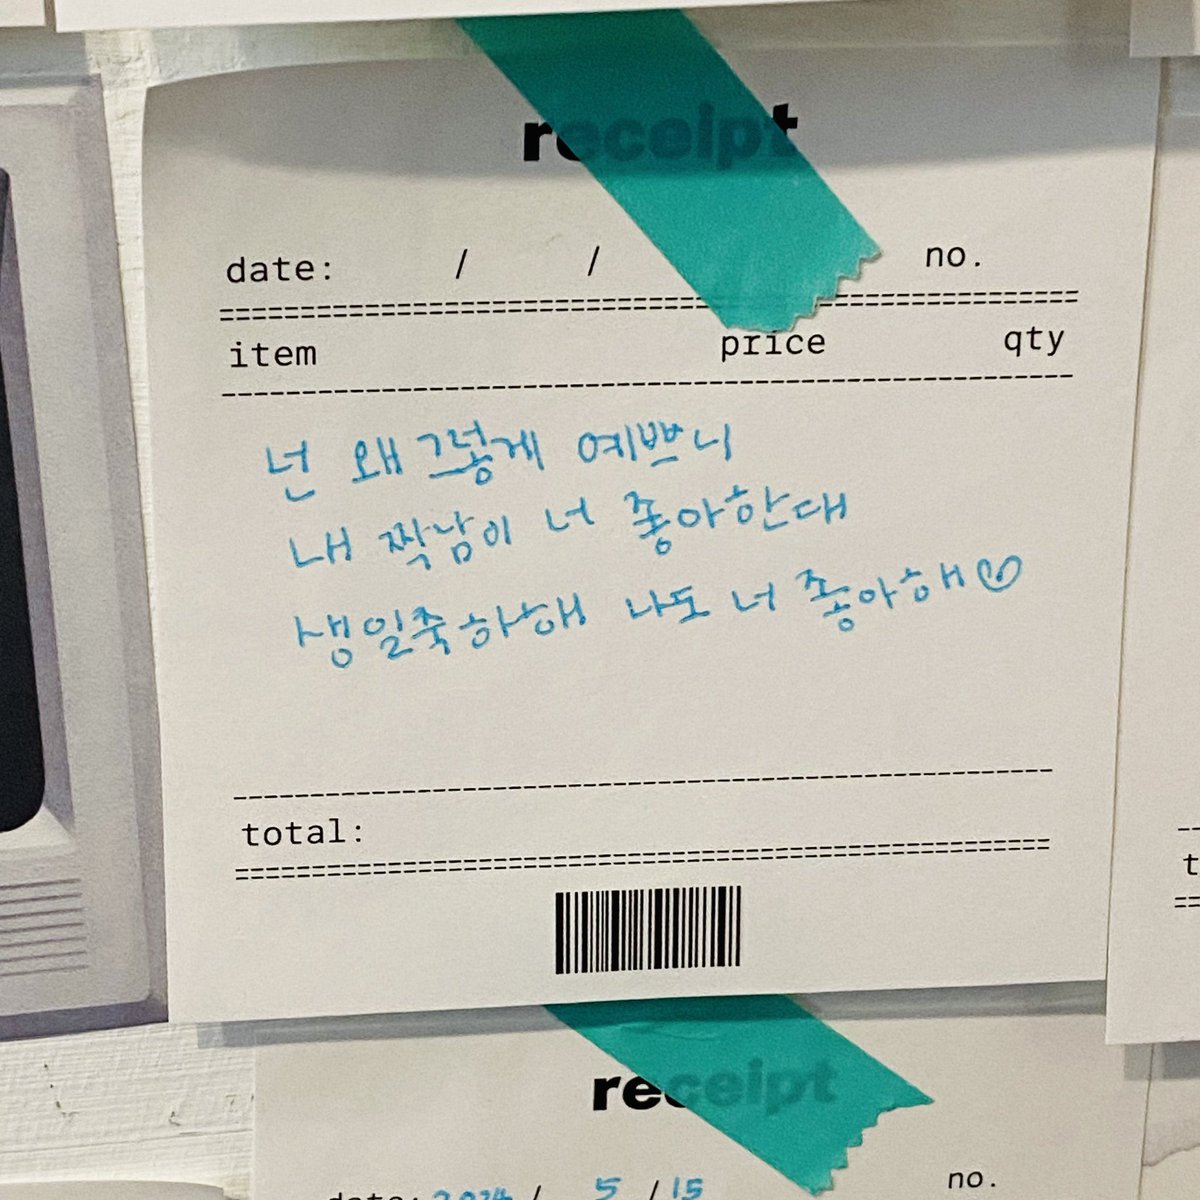 receipt
date: / / no.
item price qty
넌 왜 그렇게 예쁘니
내 짝남이 너 좋아한대
생일축하해 나도 너 좋아해♡
total:
receipt
date: 2024 / 5 / 15 no.